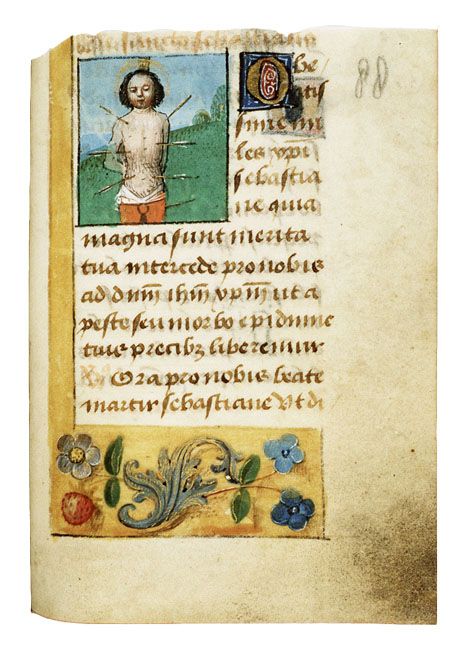 sancto sebastiani
88
O be
atis
sime mi
les xpi
sebastia
ne quia
magna sunt merita
tua intercede pro nobis
ad dnm ihm xpm ut a
peste seu morbo epidimie
tuis precibz liberemur
Ora pro nobis beate
martir sebastiane Vt di